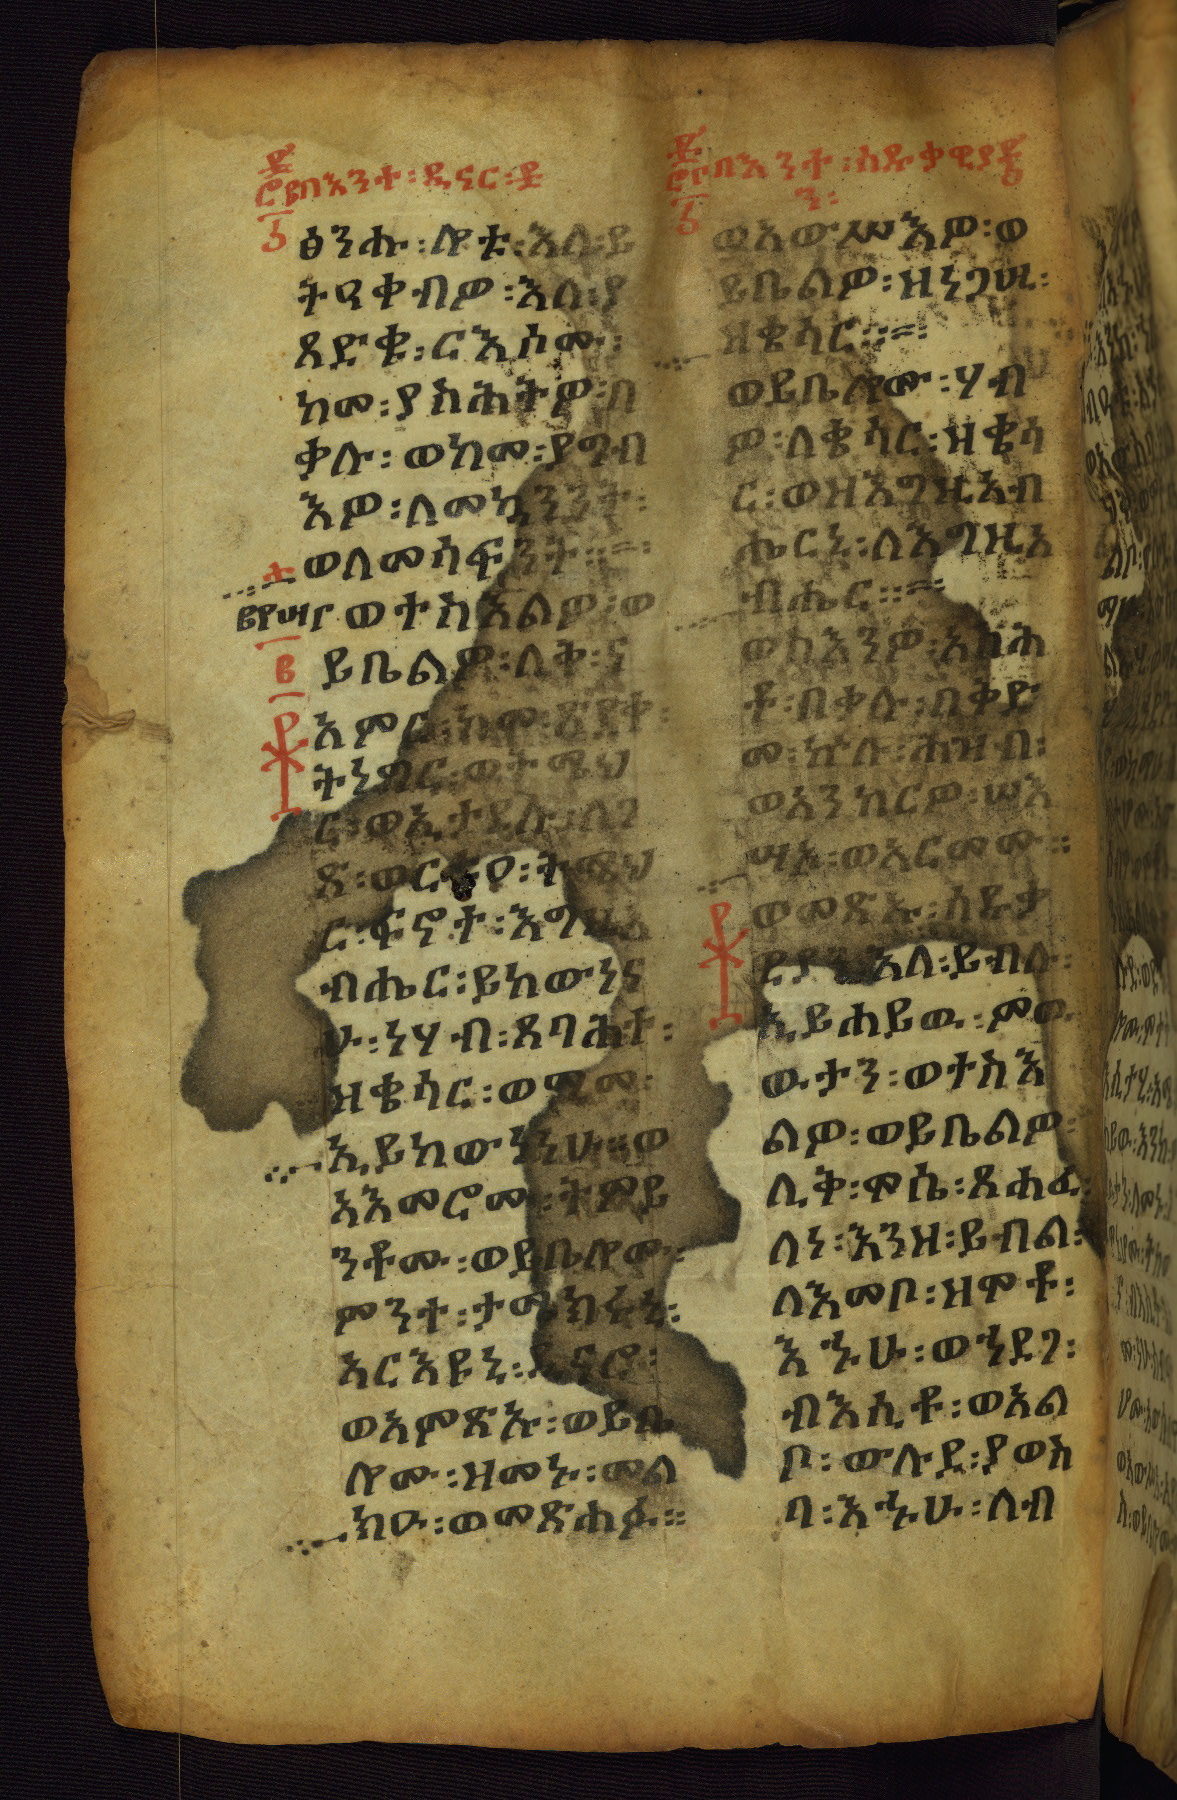 በእንተ፡ዲናር፡
ፅንሑ፡ሎቱ፡እለ፡ይ
ትዓቀብዎ፡እለ፡ያ
ጸድቁ፡ርእሶሙ፡
ከመ፡ያስሕትዎ፡በ
ቃሉ፡ወከመ፡ያግብ
እዎ፡ለመኳንንት፡
ወለመሳፍንት።
ወተስእልዎ፡ወ
ይቤልዎ፡ለቅ፡ና
አምር፡ከመ፡ጽድቀ፡
ትነግር፡ወትሜህ
ር፡ወኢታደሉ፡ለገ
ጽ፡ወርቱዐ፡ትሜህ
ር፡ፍኖተ፡እግዚአ
ብሔር፡ይከውነና
ሁ፡ነሃብ፡ጸባሕተ፡
ለቄሳር፡ወሚመ፡
ኢይከውነነሁ።ወ
አእመሮሙ፡ትምይ
ንቶሙ፡ወይቤሎሙ፡
ምንተ፡ታሜክሩኒ፡
አርእዩኒ፡ዲናሮ፡
ወአምጽኡ፡ወይቤ
ሎሙ፡ዘመኑ፡መል
ክዑ፡ወመጽሐፉ።
በእንተ፡ሰዱቃዊያ
ን፡
ወአውሥእዎ፡ወ
ይቤልዎ፡ዘነጋሢ፡
ዘቄሳር።
ወይቤሎሙ፡ሃብ
ዎ፡ለቄሳር፡ዘቄሳ
ር፡ወዘእግዚአብ
ሔርኒ፡ለእግዚአ
ብሔር።
ወስእንዎ፡አስሕ
ቶ፡በቃሉ፡በቅድ
መ፡ኵሉ፡ሕዝብ፡
ወአንከርዎ፡ሠአ
ሣኡ፡ወአርመሙ።
ወመጽኡ፡ሰዱቃ
ዊያን፡እለ፡ይብሉ፡
ኢይሐይዉ፡ምዉ
ዉታን፡ወተስእ
ልዎ፡ወይቤልዎ፡
ሊቅ፡ሞሴ፡ጸሐፈ፡
ለነ፡እንዘ፡ይብል፡
ለእመቦ፡ዘሞቶ፡
እኁሁ፡ወኀደገ፡
ብእሲቶ፡ወአል
ቦ፡ውሉደ፡ያወስ
ባ፡እኁሁ፡ለብ